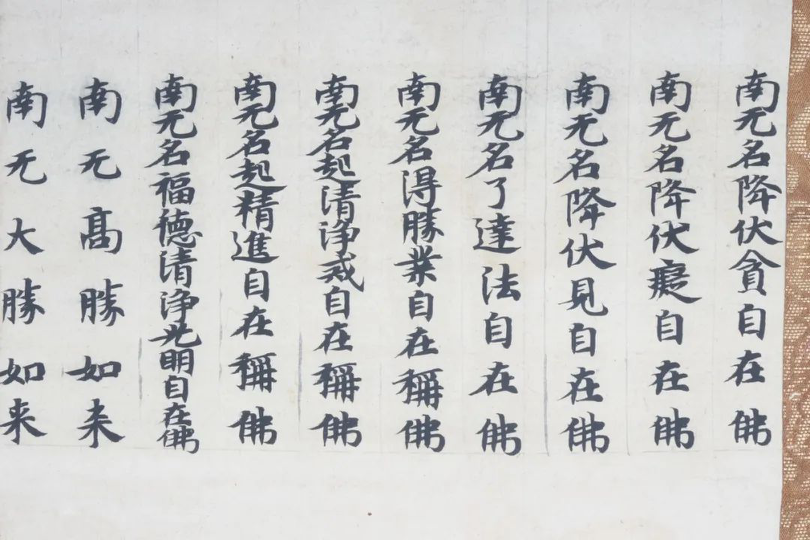 南无名降伏貪自在佛
南无名降伏癡自在佛
南无名降伏見自在佛
南无名了達法自在佛
南无名得勝業自在稱佛
南无名起清淨戒自在稱佛
南无名起精進自在稱佛
南无名福德清淨光明自在佛
南无高勝如来
南无大勝如来